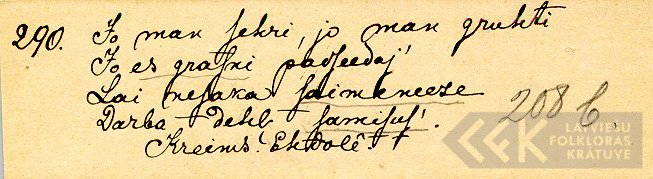 290. Jo man sekri, jo man gruhti
Jo es grasni padseedaj!
Lai nesaka saimeneeze
Darba dehl samisus!.
Kreims. Ehdolê. 208 b.
LATVIEŠU
FOLKLORAS
KRĀTUVE